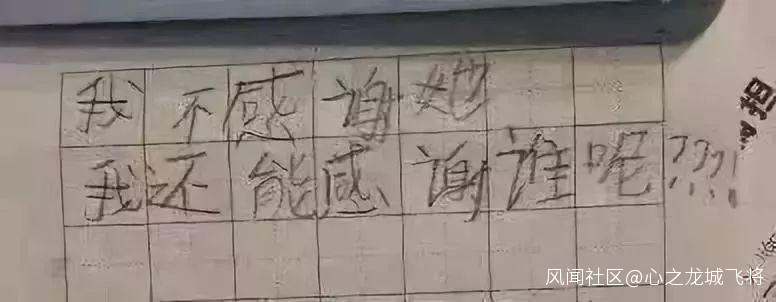 我不感谢她
我还能感谢呢???!
风闻社区@心之龙城飞将